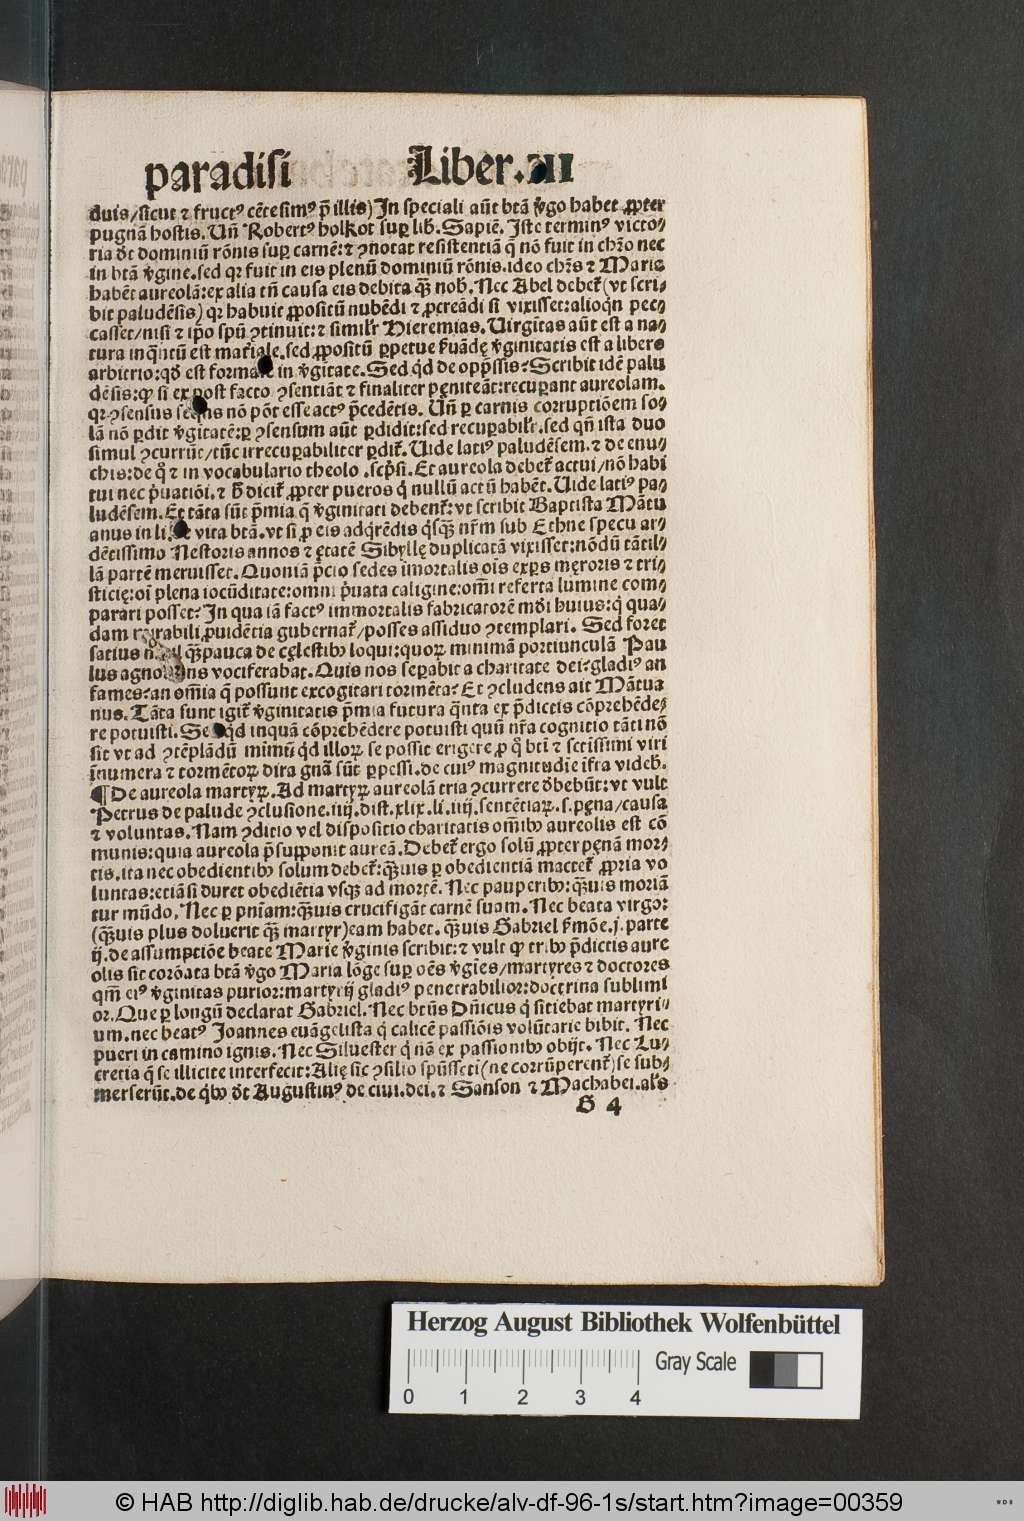 paradisi Liber. III
duis/sicut ⁊ fructꝰ cētesimꝰ p̄ illis) In speciali aūt btā v̓go habet ꝓpter
pugnā hostis. Uñ Robertꝰ holkot suꝑ lib̓. Sapiē. Iste terminꝰ victo⸗
ria dr̄ dominiū rōnis suꝑ carnē: ⁊ ꝯnotat resistentiā q̄ nō fuit in chr̄o nec
in btā v̓gine. sed qꝛ fuit in eis plenū dominiū rōnis. ideo chr̄s ⁊ Maria
habēt aureolā: ex alia tñ causa eis debita qꝫ nob̓. Nec Abel debet̄ (vt scri⸗
bit paludēsis) qꝛ habuit ꝓpositū nubēdi ⁊ ꝓcreādi si vixisset: alioqn̄ pec⸗
casset/nisi ⁊ ip̄o spū ꝯtinuit: ⁊ simil̓r Hieremias. Uirgītas aūt est a na⸗
tura inq̄ntū est mat̓iale. sed ꝓpositū ꝑpetue s̓uādę v̓ginitatis est a libero
arbitrio: qđ est formale in v̓gītate. Sed qͥd de opp̄ssis? Scribit idē palu
dēsis: ꝙ si ex post facto ꝯsentiāt ⁊ finaliter pęniteāt: recuꝑant aureolam.
qꝛ ꝯsensus seq̄ns nō pōt esse actꝰ p̄cedētis. Uñ ꝑ carnis corruptiōem so⸗
lā nō ꝑdit v̓gitatē: ꝑ ꝯsensum aūt ꝑdidit: sed recuꝑabil̓r. sed qñ ista duo
simul ꝯcurrūt/tūc irrecuꝑabiliter ꝑdit̄. Uide latiꝰ paludēsem. ⁊ de enu⸗
chis: de qͦ ⁊ in vocabulario theolo. scp̄si. Et aureola debet̄ actui/nō habi
tui nec p̓uatiōi. ⁊ ƀ dicit̄ ꝓpter pueros qͥ nullū actū habēt. Uide latiꝰ pa⸗
ludēsem. Et tāta sūt p̄mia q̄ v̓ginitati debent̄: vt scribit Baptista Mātu
anus in li. de vita btā. vt si ꝓ eis adqͥrēdis qͥsqꝫ nr̄m sub Ethne specu ar⸗
dētissimo Nestoris annos ⁊ ętatē Sibyllę duplicatā vixisset: nōdū tātil⸗
lā partē meruisset. Quoniā p̄cio sedes īmortalis oīs exꝑs męroris ⁊ tri⸗
sticię: oī plena iocūditate: omni p̓uata caligine: om̄i referta lumine com⸗
parari posset? In qua iā factꝰ immortalis fabricatorē mūdi huius: qͥ qua⸗
dam mirabili ꝓuidētia gubernat̄/posses assiduo ꝯtemplari. Sed foret
satius qꝫ pauca de cęlestibꝰ loqui: quoꝝ minimā portiunculā Pau
lus vociferabat. Quis nos seꝑabit a charitate dei? gladiꝰ an
fames? an om̄ia q̄ possunt excogitari tormēta? Et ꝯcludens ait Mātua
nus. Tāta sunt igit̄ v̓ginitatis p̄mia futura qͣnta ex p̄dictis cōprehēde⸗
re potuisti. Sed qͥd inquā cōprehēdere potuisti quū nr̄a cognitio tāti nō
sit vt ad ꝯtēplādū minimū qͥd illoꝝ se possit erigere ꝓ qͦ bti̓ ⁊ sctissimi viri
īnumera ⁊ tormētoꝝ dira gnā sūt ꝑpessi. de cuiꝰ magnitudie īfra videb̓.
¶ De aureola martyꝝ. Ad martyꝝ aureolā tria ꝯcurrere đbebūt: vt vult
Petrus de palude ꝯclusione. iiij. dist. xlix. li. iiij. sentētiaꝝ. s. pęna/causa
⁊ voluntas. Nam ꝯditio vel dispositio charitatis om̄ibꝰ aureolis est cō
munis: quia aureola p̄supponit aureā. Debet̄ ergo solū ꝓpter pęnā mor⸗
tis. ita nec obedientibꝰ solum debet̄: qꝫuis ꝑ obedientiā mactet̄ ꝓpria vo
luntas: etiā si duret obediētia vsqꝫ ad mortē. Nec pauperibꝰ: qꝫuis moriā
tur mūdo. Nec ꝑ pn̄iam: qꝫuis crucifigāt carnē suam. Nec beata virgo:
(qꝫuis plus doluerit qꝫ martyr) eam habet. qꝫuis Gabriel s̓mōe. j. parte
ij. de assumptiōe beate Marie v̓ginis scribit: ⁊ vult ꝙ tribꝰ p̄dictis aure
olis sit corōata btā v̓go Maria lōge suꝑ oēs v̓gīes/martyres ⁊ doctores
qm̄ eiꝰ v̓ginitas purior: martyrij gladiꝰ penetrabilior: doctrina sublimi
or. Que ꝑ longū declarat Gabriel. Nec btūs Dn̄icus qͥ sitiebat martyri⸗
um. nec beatꝰ Joannes euāgelista qͥ calicē passiōis volūtarie bibit. Nec
pueri in camino ignis. Nec Siluester qͥ nō ex passionibꝰ obijt. Nec Lu⸗
cretia q̄ se illicite interfecit: Alię sic̄ ꝯsilio spūssct̄i (ne corrūperent̄) se sub⸗
merserūt. de qͥbꝰ dr̄ Augustinꝰ de ciui. dei. ⁊ Sanson ⁊ Machabei. al̓s
G 4
Herzog August Bibliothek Wolfenbüttel
Gray Scale
0 1 2 3 4
© HAB http://diglib.hab.de/drucke/alv-df-96-1s/start.htm?image=00359